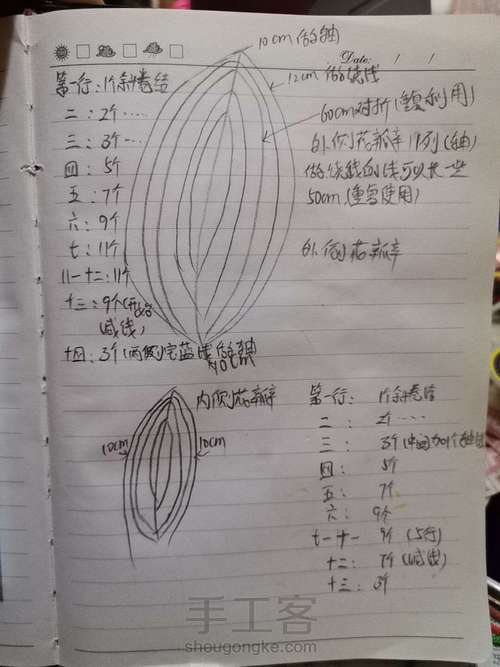 Date: / /
10cm做轴
第一行: 1个斜卷结
12cm做绕线
二: 2个……
60cm对折(重复利用)
三: 3个……
外侧花瓣 1列(轴)
四: 5个
做绕线的线可以长一些
五: 7个
50cm(重复使用)
六: 9个
七: 11个
外侧花瓣
八一十二: 11个
十三: 9个(开始
减线)
十四: 3个(两侧完蓝线做轴
10cm
内侧花瓣
10cm
10cm
第一行: 1个斜卷结
二: 2个……
三: 3个(中间加1个轴线
四: 5个
五: 7个
六: 9个
七一十一 9个 (5行)
十二: 7个(减线)
十三: 3个
手工客
shougongke.com